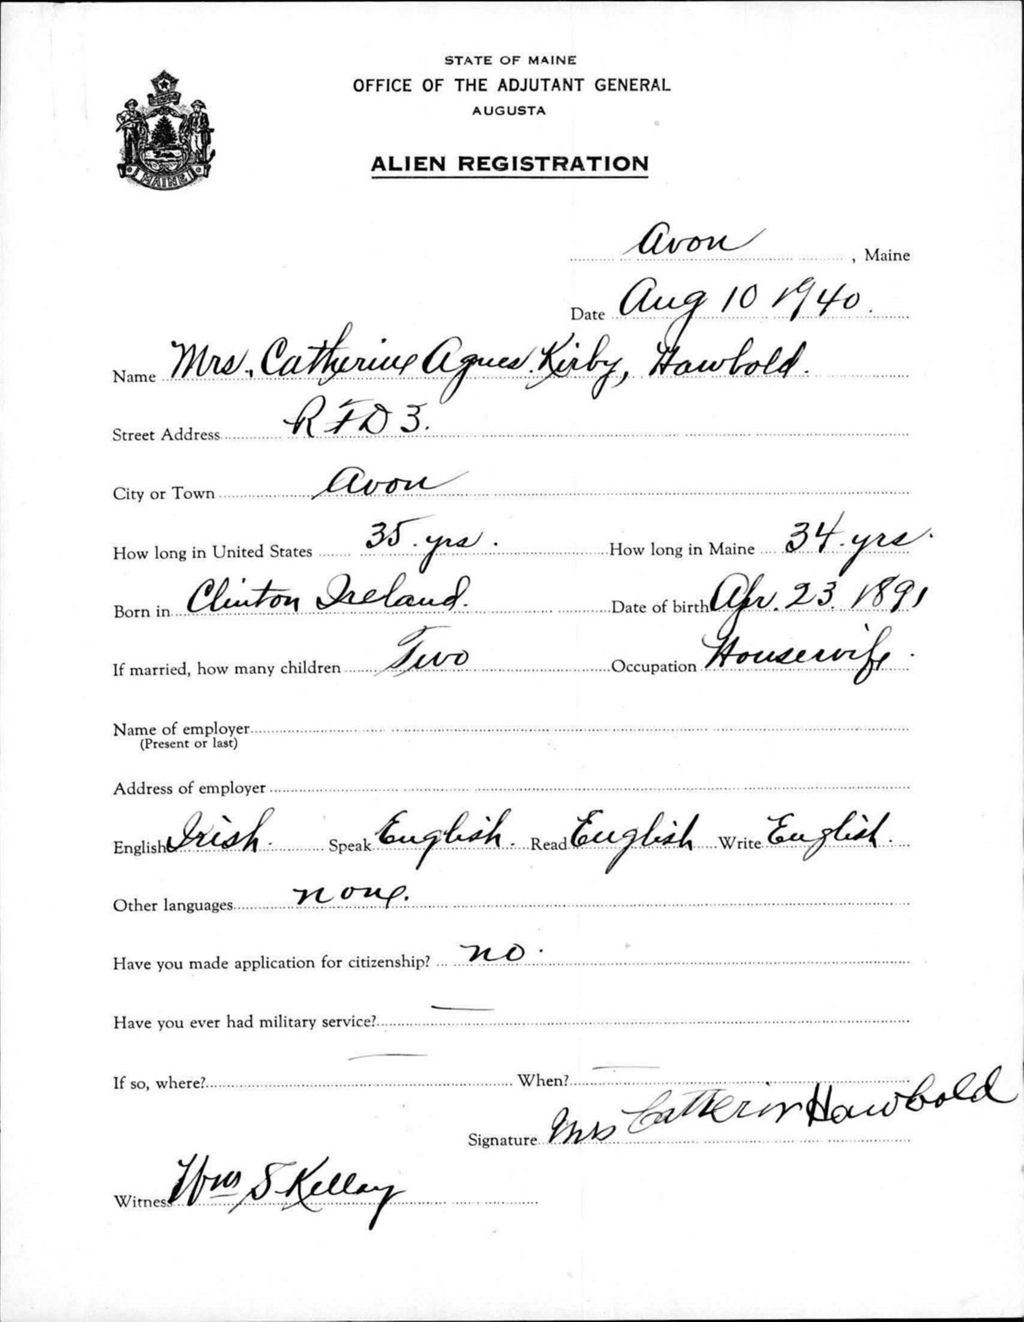 STATE OF MAINE
OFFICE OF THE ADJUTANT GENERAL
AUGUSTA
MAINE
ALIEN REGISTRATION
Avon, Maine
Date Aug 10 1940.
Name Mrs. Catherine Agnes Kirby, Hawbold.
Street Address R F D 3.
City or Town Avon
How long in United States 35 yrs. How long in Maine 34 yrs.
Born in Clinton Ireland. Date of birth Apr. 23. 1891
If married, how many children Two Occupation Housewife.
Name of employer
(Present or last)
Address of employer
English Irish. Speak English. Read English Write English.
Other languages none.
Have you made application for citizenship? no.
Have you ever had military service? —
If so, where? — When? —
Signature Mrs Catherin Hawbold
Witness Wm S Kelley